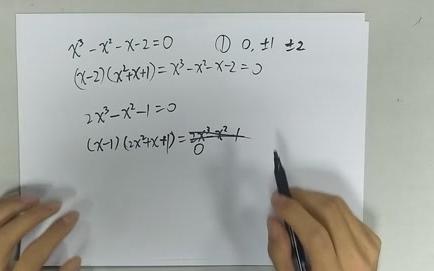 x³ - x² - x - 2 = 0 ① 0, ±1 ±2
(x-2)(x²+x+1) = x³ - x² - x - 2 = 0
2x³ - x² - 1 = 0
(x-1)(2x²+x+1) = 2x³ - x² - 1
0